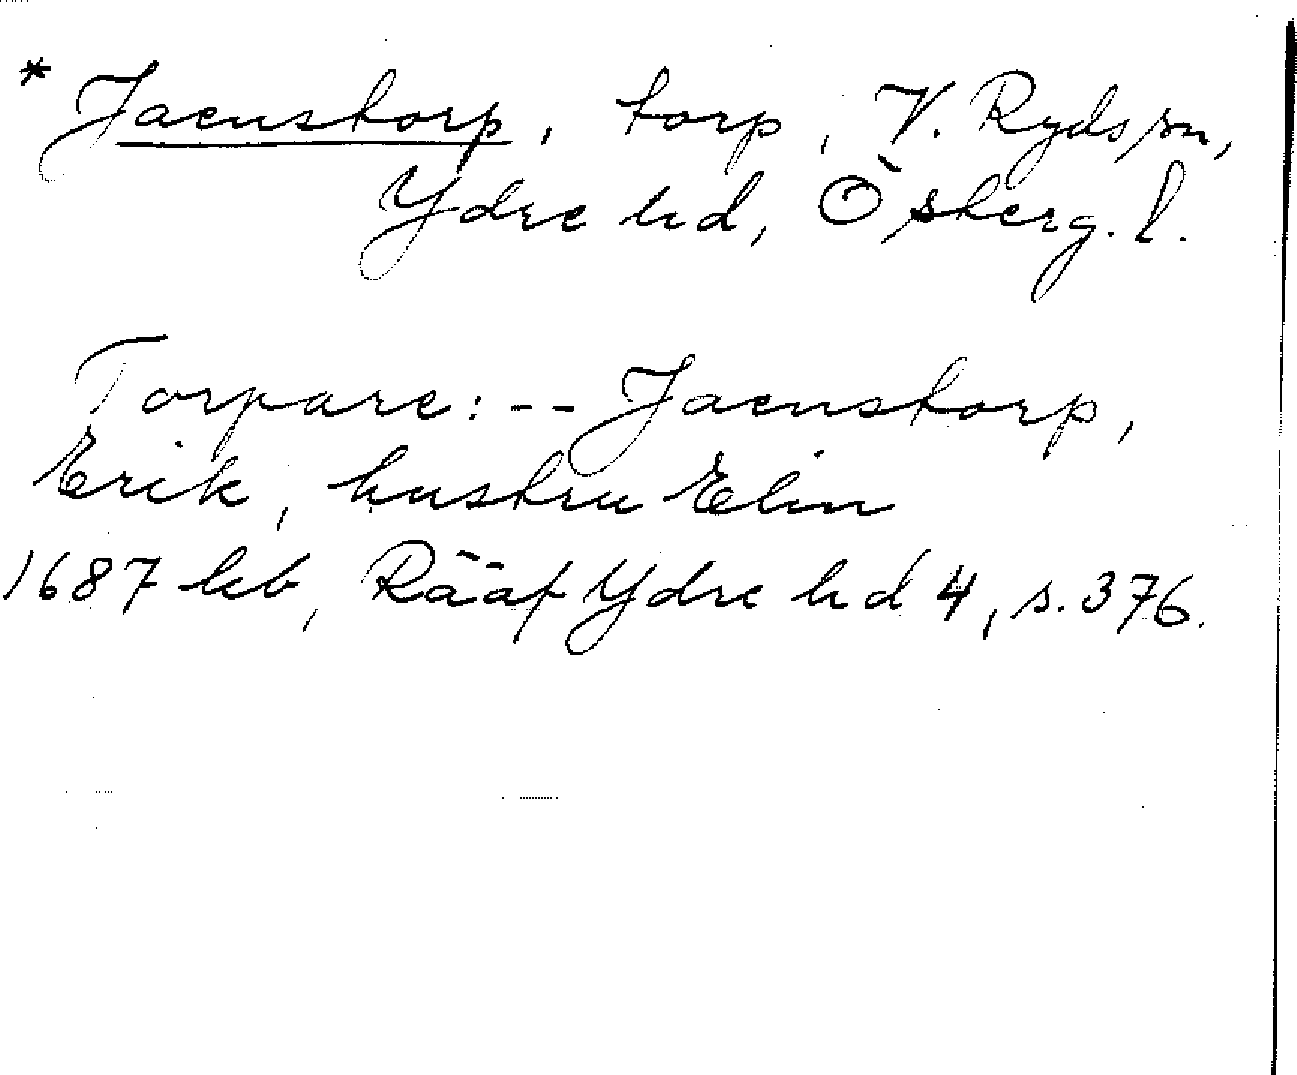 * Jaenstorp, torp, V. Ryds sn,
Ydre hd, Österg. l.
Torpare: -- Jaenstorp,
Erik, hustru Elin
1687 kb, Rääf Ydre hd 4, s. 376.